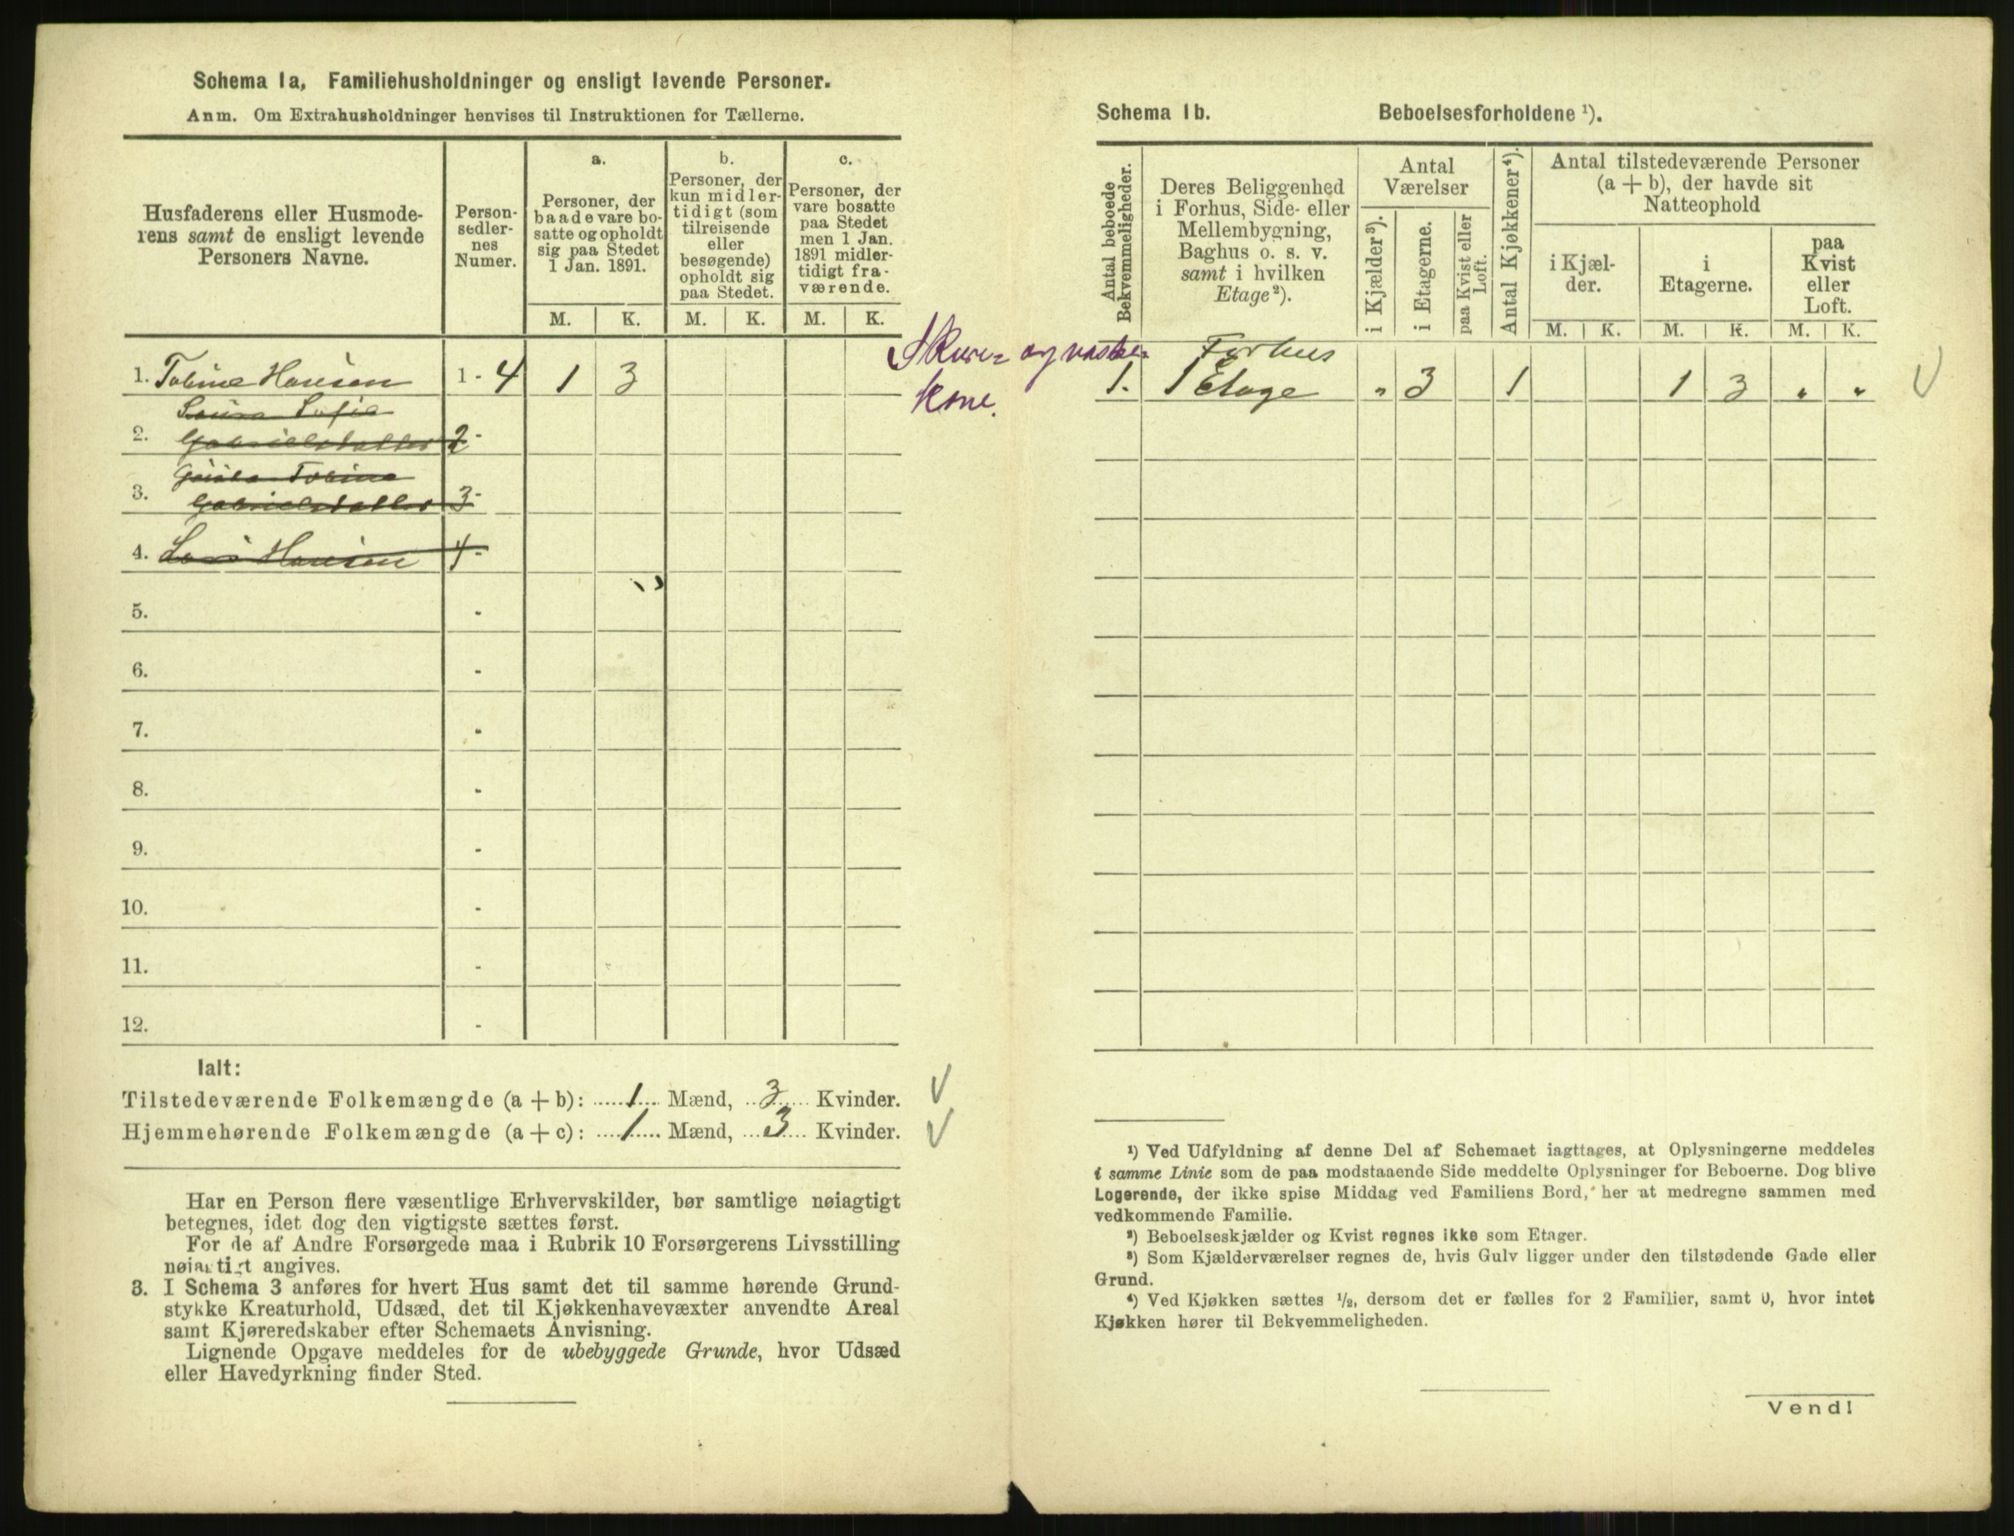 Schema 1a, Familiehusholdninger og ensligt levende Personer.
Anm. Om Extrahusholdninger henvises til Instruktionen for Tællerne.
Husfaderens eller Husmode-
rens samt de ensligt levende
Personers Navne.
Person-
sedler-
nes
Numer.
a.
Personer, der
baade vare bo-
satte og opholdt
sig paa Stedet
1 Jan. 1891.
b.
Personer, der
kun midler-
tidigt (som
tilreisende
eller
besøgende)
opholdt sig
paa Stedet.
c.
Personer, der
vare bosatte
paa Stedet
men 1 Jan.
1891 midler-
tidigt fra-
værende.
M. K. M. K. M. K.
1. Tobine Hansen 1 - 4 1 3
Sofie
2. Gabrielsdatter 2 -
Tobine
3. Gabrielsdatter 3 -
4. Hansen 4 -
5. -
6. -
7. -
8. -
9. -
10. -
11. -
12. -
Ialt:
Tilstedeværende Folkemængde (a + b): 1 Mænd, 3 Kvinder.
Hjemmehørende Folkemængde (a + c): 1 Mænd, 3 Kvinder.
Har en Person flere væsentlige Erhvervskilder, bør samtlige nøiagtigt
betegnes, idet dog den vigtigste sættes først.
For de af Andre Forsørgede maa i Rubrik 10 Forsørgerens Livsstilling
nøiagtigt angives.
3. I Schema 3 anføres for hvert Hus samt det til samme hørende Grund-
stykke Kreaturhold, Udsæd, det til Kjøkkenhavevæxter anvendte Areal
samt Kjøreredskaber efter Schemaets Anvisning.
Lignende Opgave meddeles for de ubebyggede Grunde, hvor Udsæd
eller Havedyrkning finder Sted.
Skure- og vaske-
kone.
Schema 1b. Beboelsesforholdene ¹).
Antal beboede
Bekvemmeligheder.
Deres Beliggenhed
i Forhus, Side- eller
Mellembygning,
Baghus o. s. v.
samt i hvilken
Etage²).
Antal
Værelser
i Kjælder³).
i Etagerne.
paa Kvist eller
Loft.
Antal Kjøkkener⁴).
Antal tilstedeværende Personer
(a + b), der havde sit
Natteophold
i Kjæl-
der.
i
Etagerne.
paa
Kvist
eller
Loft.
M. K. M. K. M. K.
Forhus
1. 1 Etage " 3 1 1 3 " "
¹) Ved Udfyldning af denne Del af Schemaet iagttages, at Oplysningerne meddeles
i samme Linie som de paa modstaaende Side meddelte Oplysninger for Beboerne. Dog blive
Logerende, der ikke spise Middag ved Familiens Bord, her at medregne sammen med
vedkommende Familie.
²) Beboelseskjælder og Kvist regnes ikke som Etager.
³) Som Kjælderværelser regnes de, hvis Gulv ligger under den tilstødende Gade eller
Grund.
⁴) Ved Kjøkken sættes ½, dersom det er fælles for 2 Familier, samt 0, hvor intet
Kjøkken hører til Bekvemmeligheden.
Vend!